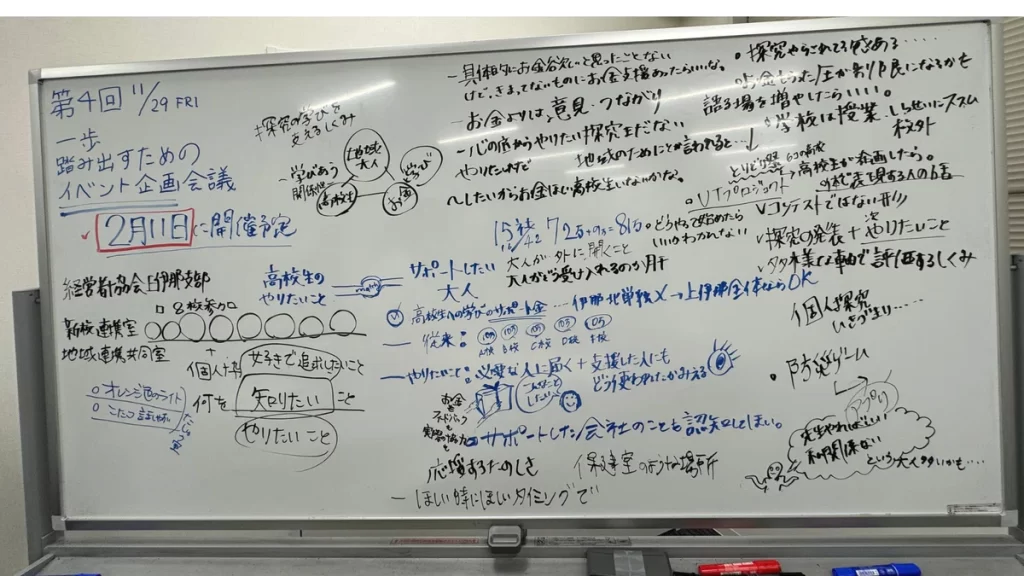 第4回 11/29 FRI
一歩
踏み出すための
イベント企画会議
2月11日に開催予定
探究の学びを
支えるしくみ
学びあう
関係性
地域
大人
高校生
お金
経営者協会上伊那支部
8校参加
高校生の
やりたいこと
サポートしたい
大人
地域連携共同室
個人
好きで追求したいこと
何を 知りたい こと
やりたいこと
オレンジ色のライト
こたつ
一具体的にお金欲しいと思ったことない
けど、きまってないものにお金支援あったらいいな。
一お金よりは、意見・つながり
一心の底からやりたい探究まだない
やりたいけど 地域のためにとか言われると…
〜したいからお金ほしい高校生いないかな。
15
72万+9万=81万
どうやって始めたら
いいかわからない
大人が外に開くこと
大人がどう受け入れるのか
高校生への学びのサポート金… 伊那北単独×→上伊那全体ならOK
一従来:
A校 B校 C校 D校
一やりたいこと:必要な人に届く+支援した人にも
どう使われたかみえる
お金
フィードバック
サポートした会社のことも認知してほしい。
応援するたのしさ 保健室のような場所
一ほしい時にほしいタイミングで
探究やらされてる感ある……
お金もらった方が
語る場を増やしたらいい。
学校は授業
校外
高校生が企画したら。
VTプロジェクト
コンテストではない形
探究の発表+次やりたいこと
評価するしくみ
個人探究
防災ゲーム
アプリ
先生やればいい
私関係ない
という大人多いかも…